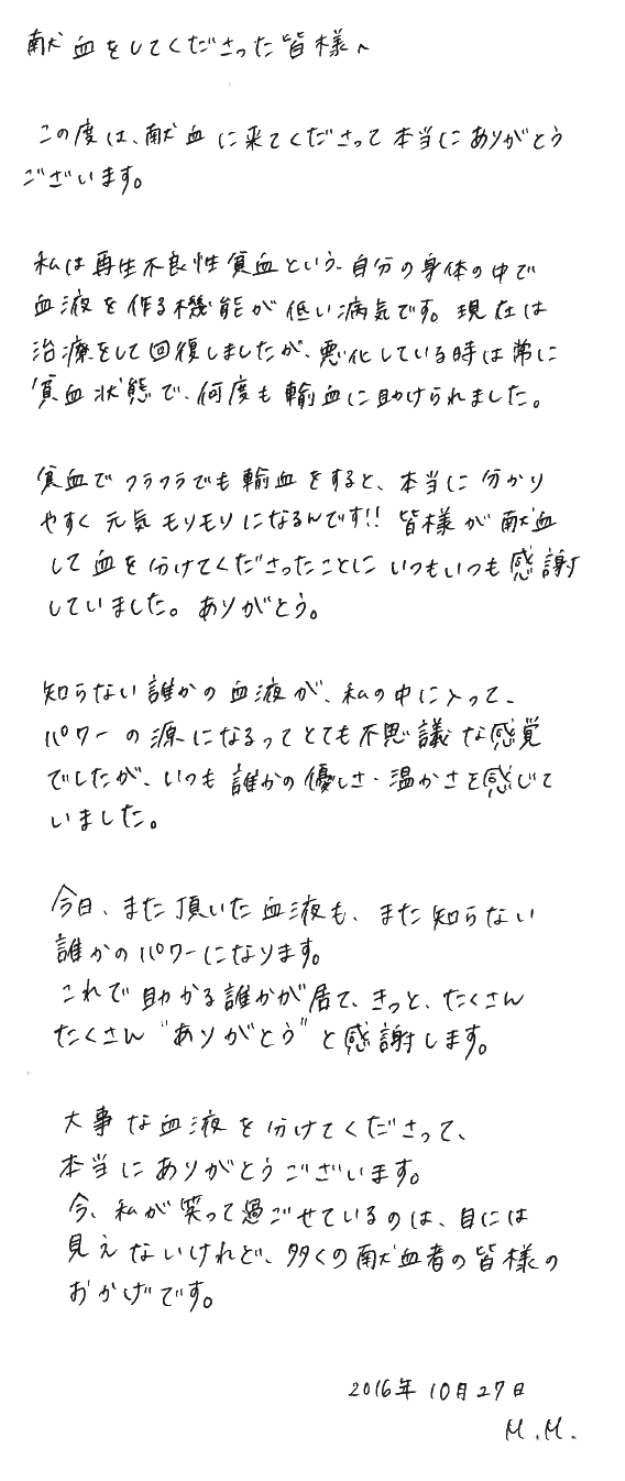 献血をしてくださった皆様へ
この度は、献血に来てくださって本当にありがとう
ございます。
私は再生不良性貧血という、自分の身体の中で
血液を作る機能が低い病気です。現在は
治療をして回復しましたが、悪化している時は常に
貧血状態で、何度も輸血に助けられました。
貧血でフラフラでも輸血をすると、本当に分かり
やすく元気モリモリになるんです!! 皆様が献血
して血を分けてくださったことにいつもいつも感謝
していました。ありがとう。
知らない誰かの血液が、私の中に入って、
パワーの源になるってとても不思議な感覚
でしたが、いつも誰かの優しさ・温かさを感じて
いました。
今日、また頂いた血液も、また知らない
誰かのパワーになります。
これで助かる誰かが居て、きっと、たくさん
たくさん“ありがとう”と感謝します。
大事な血液を分けてくださって、
本当にありがとうございます。
今、私が笑って過ごせているのは、目には
見えないけれど、多くの献血者の皆様の
おかげです。
2016年10月27日
M.M.